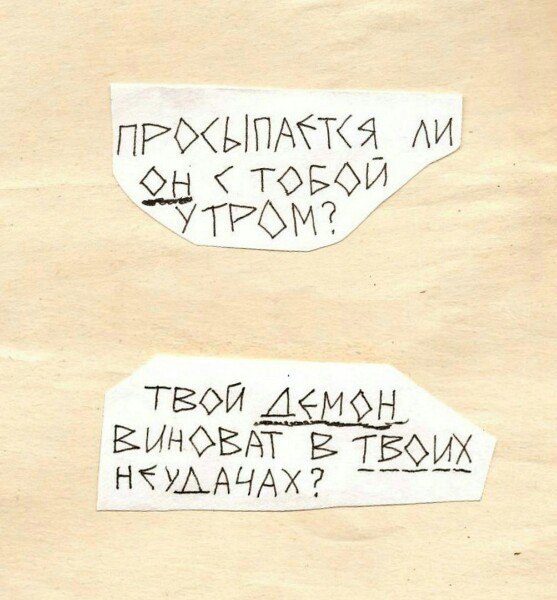 ПРОСЫПАЕТСЯ ЛИ
ОН С ТОБОЙ
УТРОМ?
ТВОЙ ДЕМОН
ВИНОВАТ В ТВОИХ
НЕУДАЧАХ?